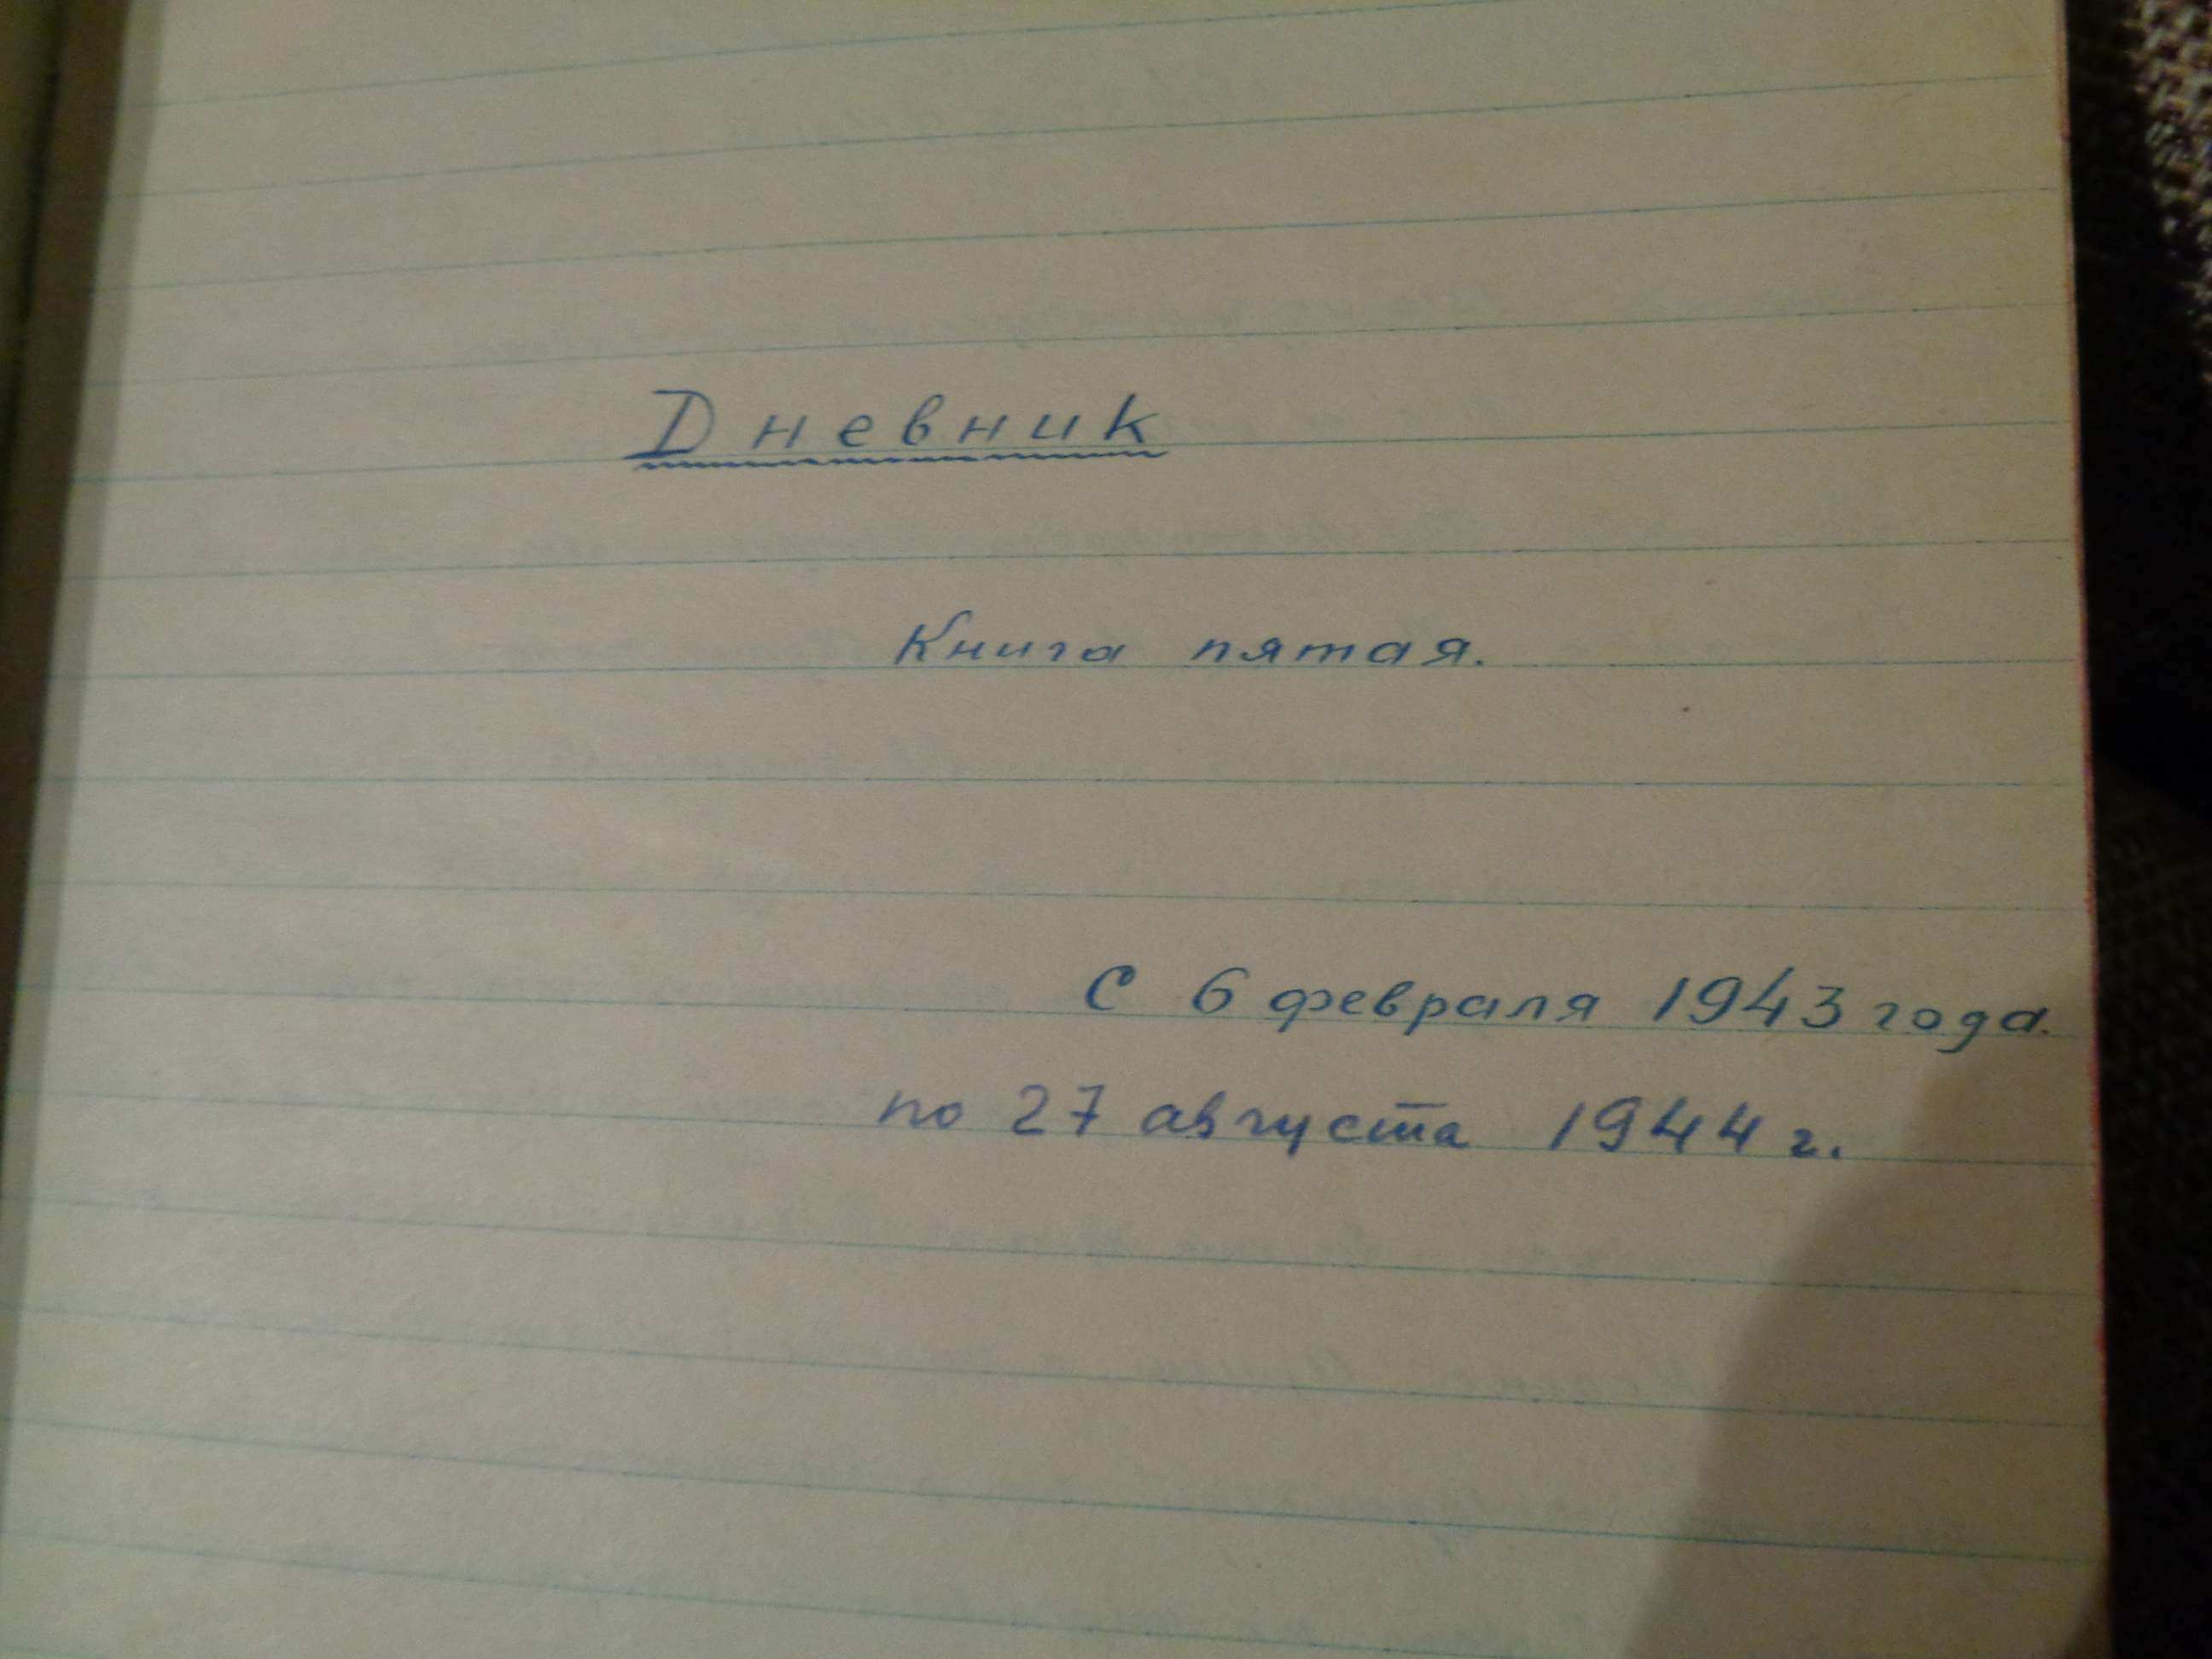 Дневник
Книга пятая.
С 6 февраля 1943 года.
по 27 августа 1944 г.